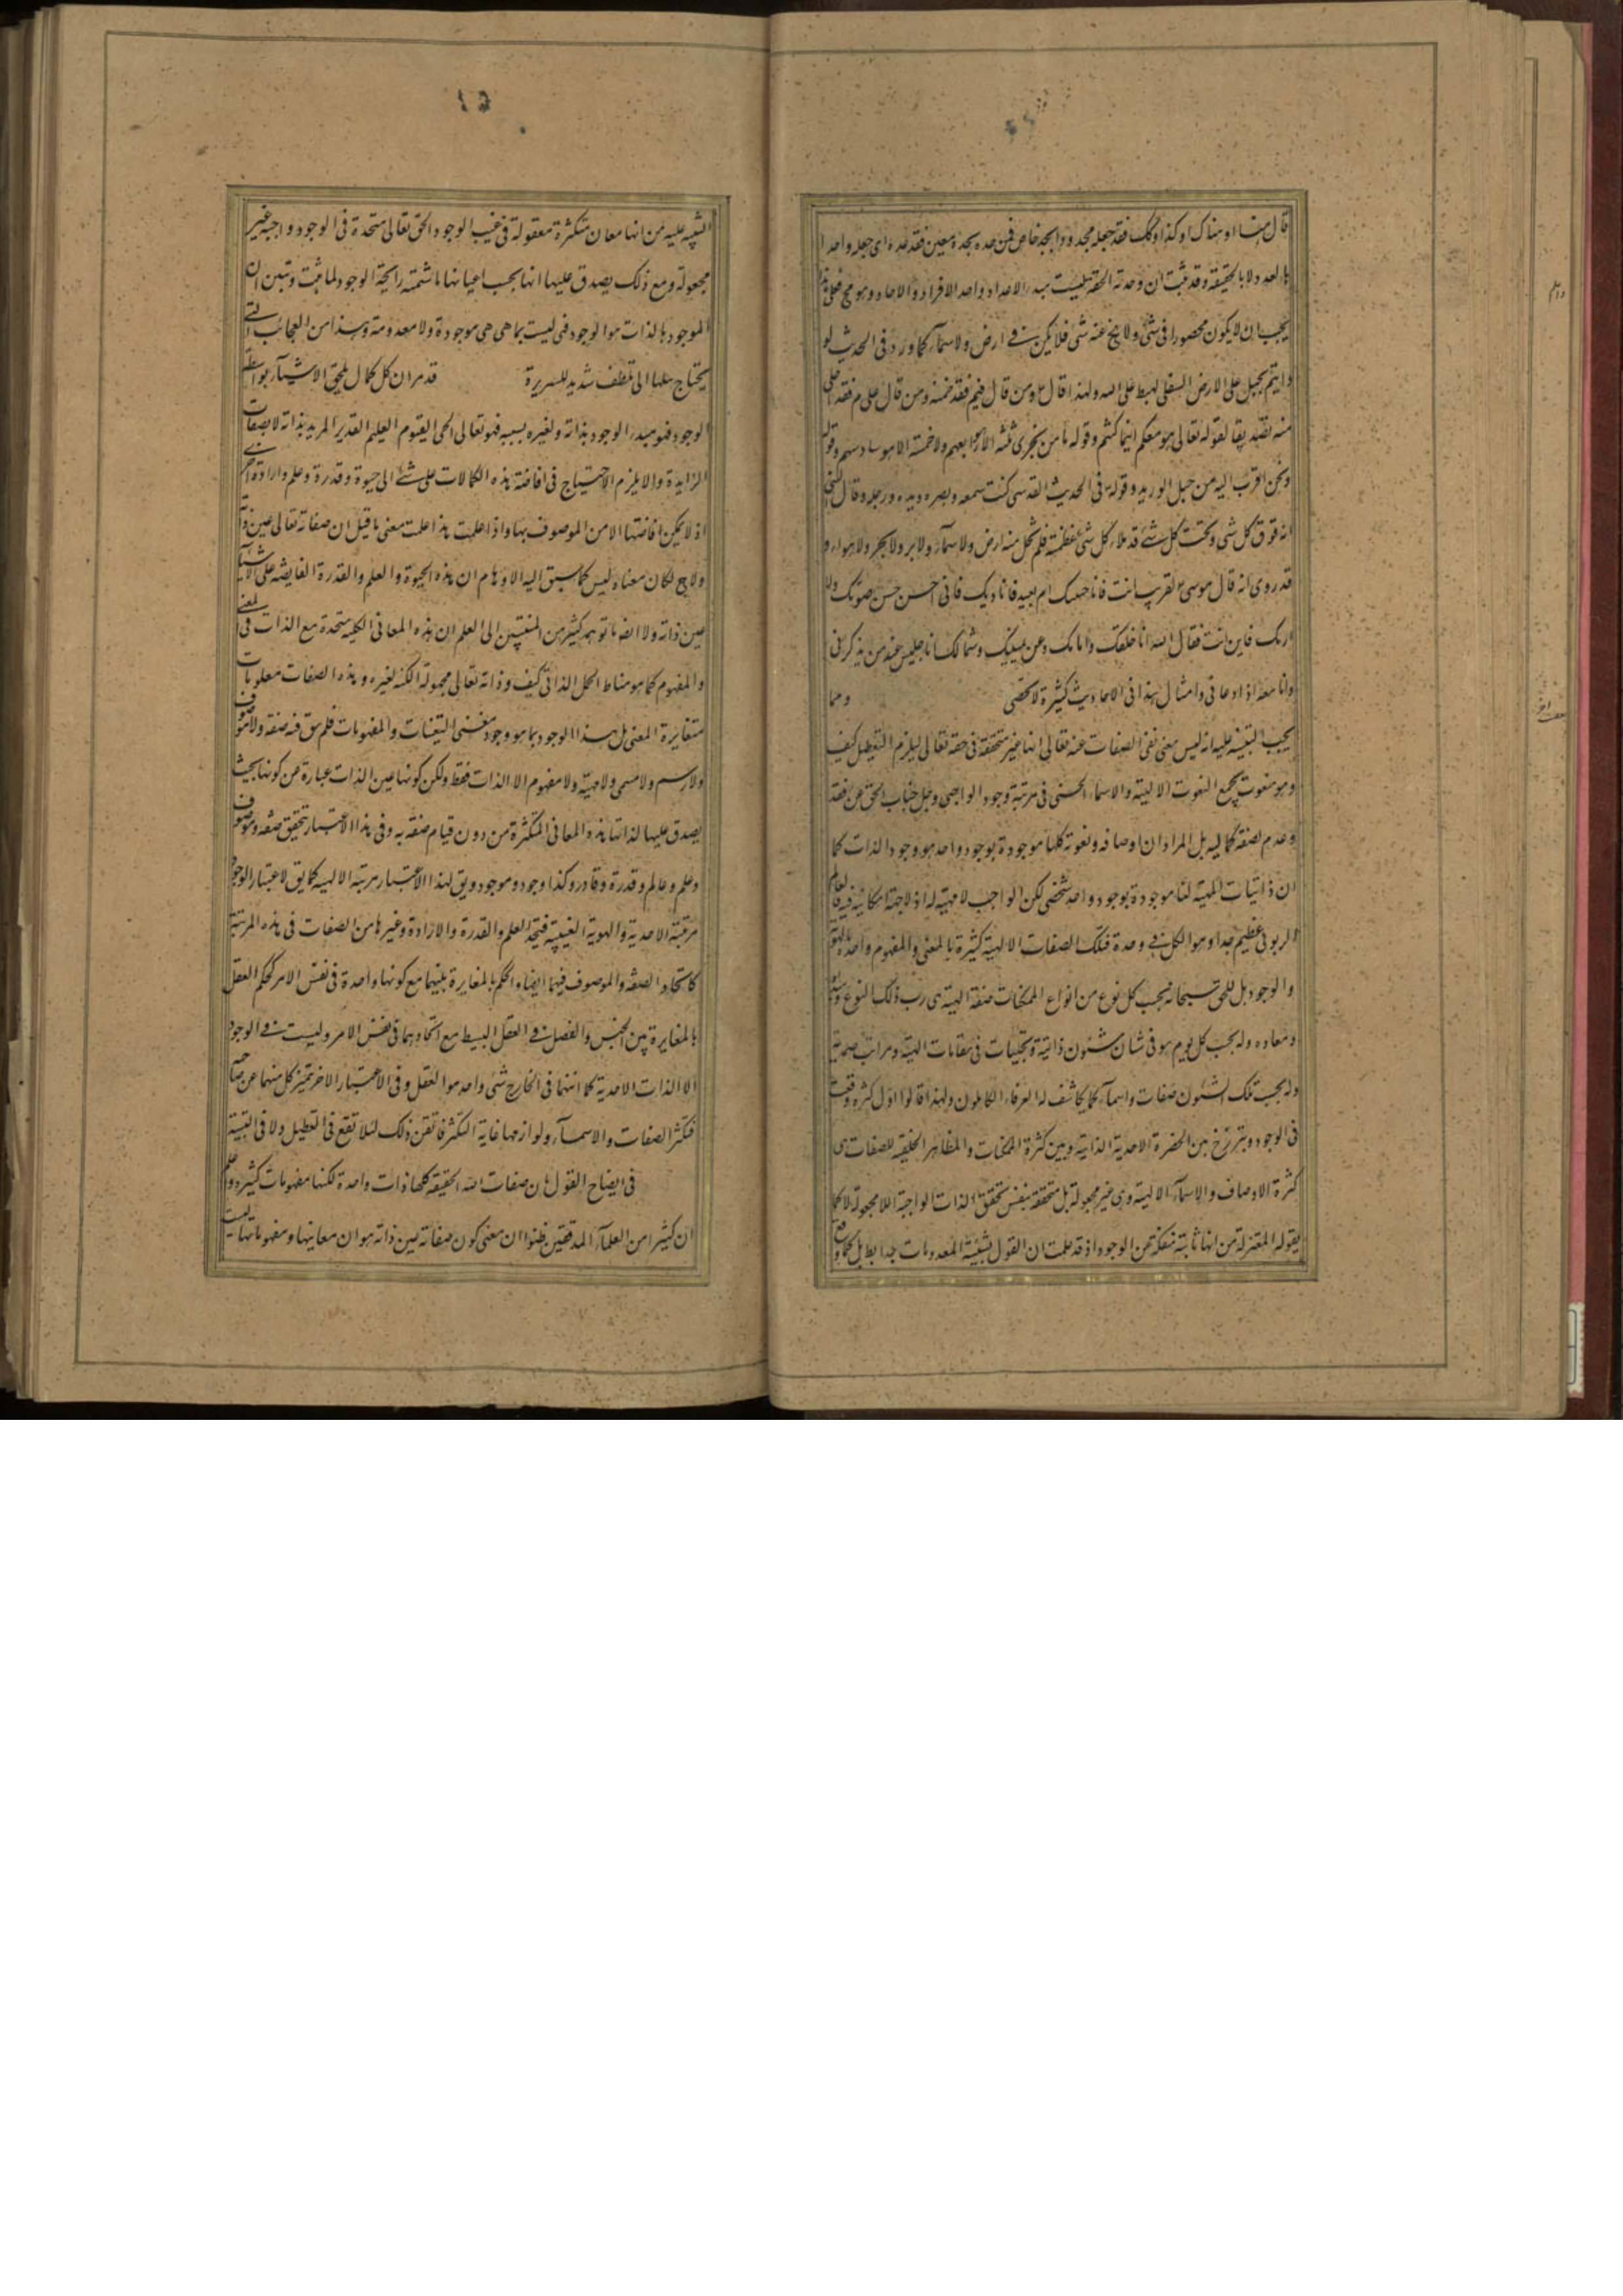 قال هنا او هناك او كذا وكك فقد جعله محدودا بحد خاص فمن حده بحد معين فقد عده اى جعله واحدا
بالعدد لا بالحقيقة وقد ثبت ان وحدته الحقة ليست مبدء الاعداد واحد الافراد والاحاد وهو مح فعلى هذا
يجب ان لا يكون محصورا فى شئ ولا يخ عنه شئ فلا يكن فى ارض ولا سمآء كما ورد فى الحديث لو
دليتم بحبل على الارض السفلى لهبط على الله ولهذا قال ع ومن قال فيم فقد ضمنه ومن قال على م فقد اخلى
منه تصديقا لقوله تعالى هو معكم اينما كنتم وقوله ما من نجوى ثلثه الا هو رابعهم ولا خمسة الا هو سادسهم وقوله
ونحن اقرب اليه من حبل الوريد وقوله فى الحديث القدسى كنت سمعه وبصره ويده ورجله وقال النبى
انه فوق كل شى وتحت كل شئ قد ملاء كل شئ عظمته فلم تخل منه ارض ولا سمآء ولا بر ولا بحر ولا هواء و
قد روى انه قال موسى اقريب انت فاناجيك ام بعيد فاناديك فانى احس حسن صوتك ولا
اريك فاين انت فقال الله انا خلفك وامامك وعن يمينك وشمالك انا جليس عند من يذكرنى
وانا معه اذا دعانى وامثال هذا فى الاحاديث كثيرة لا تحصى ومما
يجب التنبيه عليه انه ليس معنى نفى الصفات عنه تعالى انها غير متحققة فى حقه تعالى ليلزم التعطيل كيف
وهو منعوت بجميع النعوت الالهية والاسماء الحسنى فى مرتبة وجود الواجبى وجل جناب الحق عن فقد
وعدم لصفة كمالية بل المراد ان اوصافه ونعوته كلها موجودة بوجود واحد هو وجود الذات كما
ان ذاتيات المهية لنا موجودة بوجود واحد شخصى لكن الواجب لا مهية له اذ لا جهة امكانية فيه فالعالم
الربوبى عظيم جدا وهو الكل فى وحدة فتلك الصفات الالهية كثيرة بالمعنى والمفهوم واحدة بالهوية
والوجود بل للحق سبحانه بحسب كل نوع من انواع الممكنات صفة الهية هى رب ذلك النوع ومبدئه
ومعاده وله بحسب كل يوم هو فى شان شئون ذاتية وتجليات فى مقامات الهية ومراتب صمدية
وله بحسب تلك الشئون صفات واسمآء كما يكاشف له العرفاء الكاملون ولهذا قالوا اول كثرة وقعت
فى الوجود وبرزخ بين الحضرة الاحدية الذاتية وبين كثرة الممكنات والمظاهر الخلقيه للصفات هى
كثرة الاوصاف والاسمآء الالهية وهى غير مجعولة بل متحققة بنفس تحقق الذات الواجبة اللا مجعولة لا كما
يقوله المعتزلة من انها ثابتة منفكة عن الوجود اذ قد علمت ان القول بشيئية المعدومات جدا بطل بل كما وقع
التنبيه عليه من انها معان متكثرة معقولة فى غيب الوجود الحق تعالى متحدة فى الوجود واجبة غير
مجعولة ومع ذلك يصدق عليها انها بحسب اعيانها ما شمته رايحة الوجود لما ثبت وتبين ان
الموجود بالذات هو الوجود فهى ليست بما هى هى موجودة ولا معدومة وهذا من العجائب التى
يحتاج نيلها الى تلطف شديد للسريرة قد مر ان كل كمال يلحق الاشياء بواسطة
الوجود فهو مبدء الوجود بذاته ولغيره بسببه فهو تعالى الحى القيوم العليم القدير المريد بذاته لا بصفات
الزايدة والا يلزم الاحتياج فى افاضة هذه الكمالات على شئ الى حيوة وقدرة وعلم وارادة اخرى
اذ لا يمكن افاضتها الا من الموصوف بها واذا علمت هذا علمت معنى ما قيل ان صفاته تعالى عين ذاته
ولاح لك ان معناه ليس كما سبق اليه الاوهام ان هذه الحيوة والعلم والقدرة الفايضة على الاشيا
عين ذاته ولا ايضا ما توهم كثير من المنتسبين الى العلم ان هذه المعانى الكلية متحدة مع الذات فى المعنى
والمفهوم كما هو مناط الحمل الذاتى كيف وذاته تعالى مجهولة الكنه لغيره وهذه الصفات معلومات
متغايرة المعنى بل هذا الوجود بما هو وجود مفنى التعينات والمفهومات فلم يبق فيه صفة ولا موصوف
ولا رسم ولا مسمى ولا مهية ولا مفهوم الا الذات فقط ولكن كونها عين الذات عبارة من كونها بحيث
يصدق عليها لذاتها هذه المعانى المتكثرة من دون قيام صفة به وفى هذا الاعتبار تحقق صفة وموصوف
وعلم وعالم وقدرة وقادر وكذا وجود وموجود ويق لهذا الاعتبار مرتبة الالهية كما يق لاعتبار الوجود
مرتبة الاحدية والهوية الغيبية فيتحد العلم والقدرة والارادة وغيرها من الصفات فى هذه المرتبة
كاتحاد الصفة والموصوف فيها ايضا والحكم بالمغايرة بينهما مع كونها واحدة فى نفس الامر كحكم العقل
بالمغايرة بين الجنس والفصل فى العقل البسيط مع اتحادهما فى نفس الامر وليست فى الوجود
الا الذات الاحدية كما انهما فى الخارج شئ واحد هو العقل وفى الاعتبار الاخر تميز كل منهما عن صاحبه
فتكثر الصفات والاسمآء ولوازمها غاية التكثر فاتقن ذلك لئلا تقع فى التعطيل ولا فى التشبيه
فى ايضاح القول بان صفات الله الحقيقة كلها ذات واحدة لكنها مفهومات كثيرة واعلم
ان كثيرا من العلمآء المدققين ظنوا ان معنى كون صفاته عين ذاته هو ان معانيها ومفهوماتها ليست